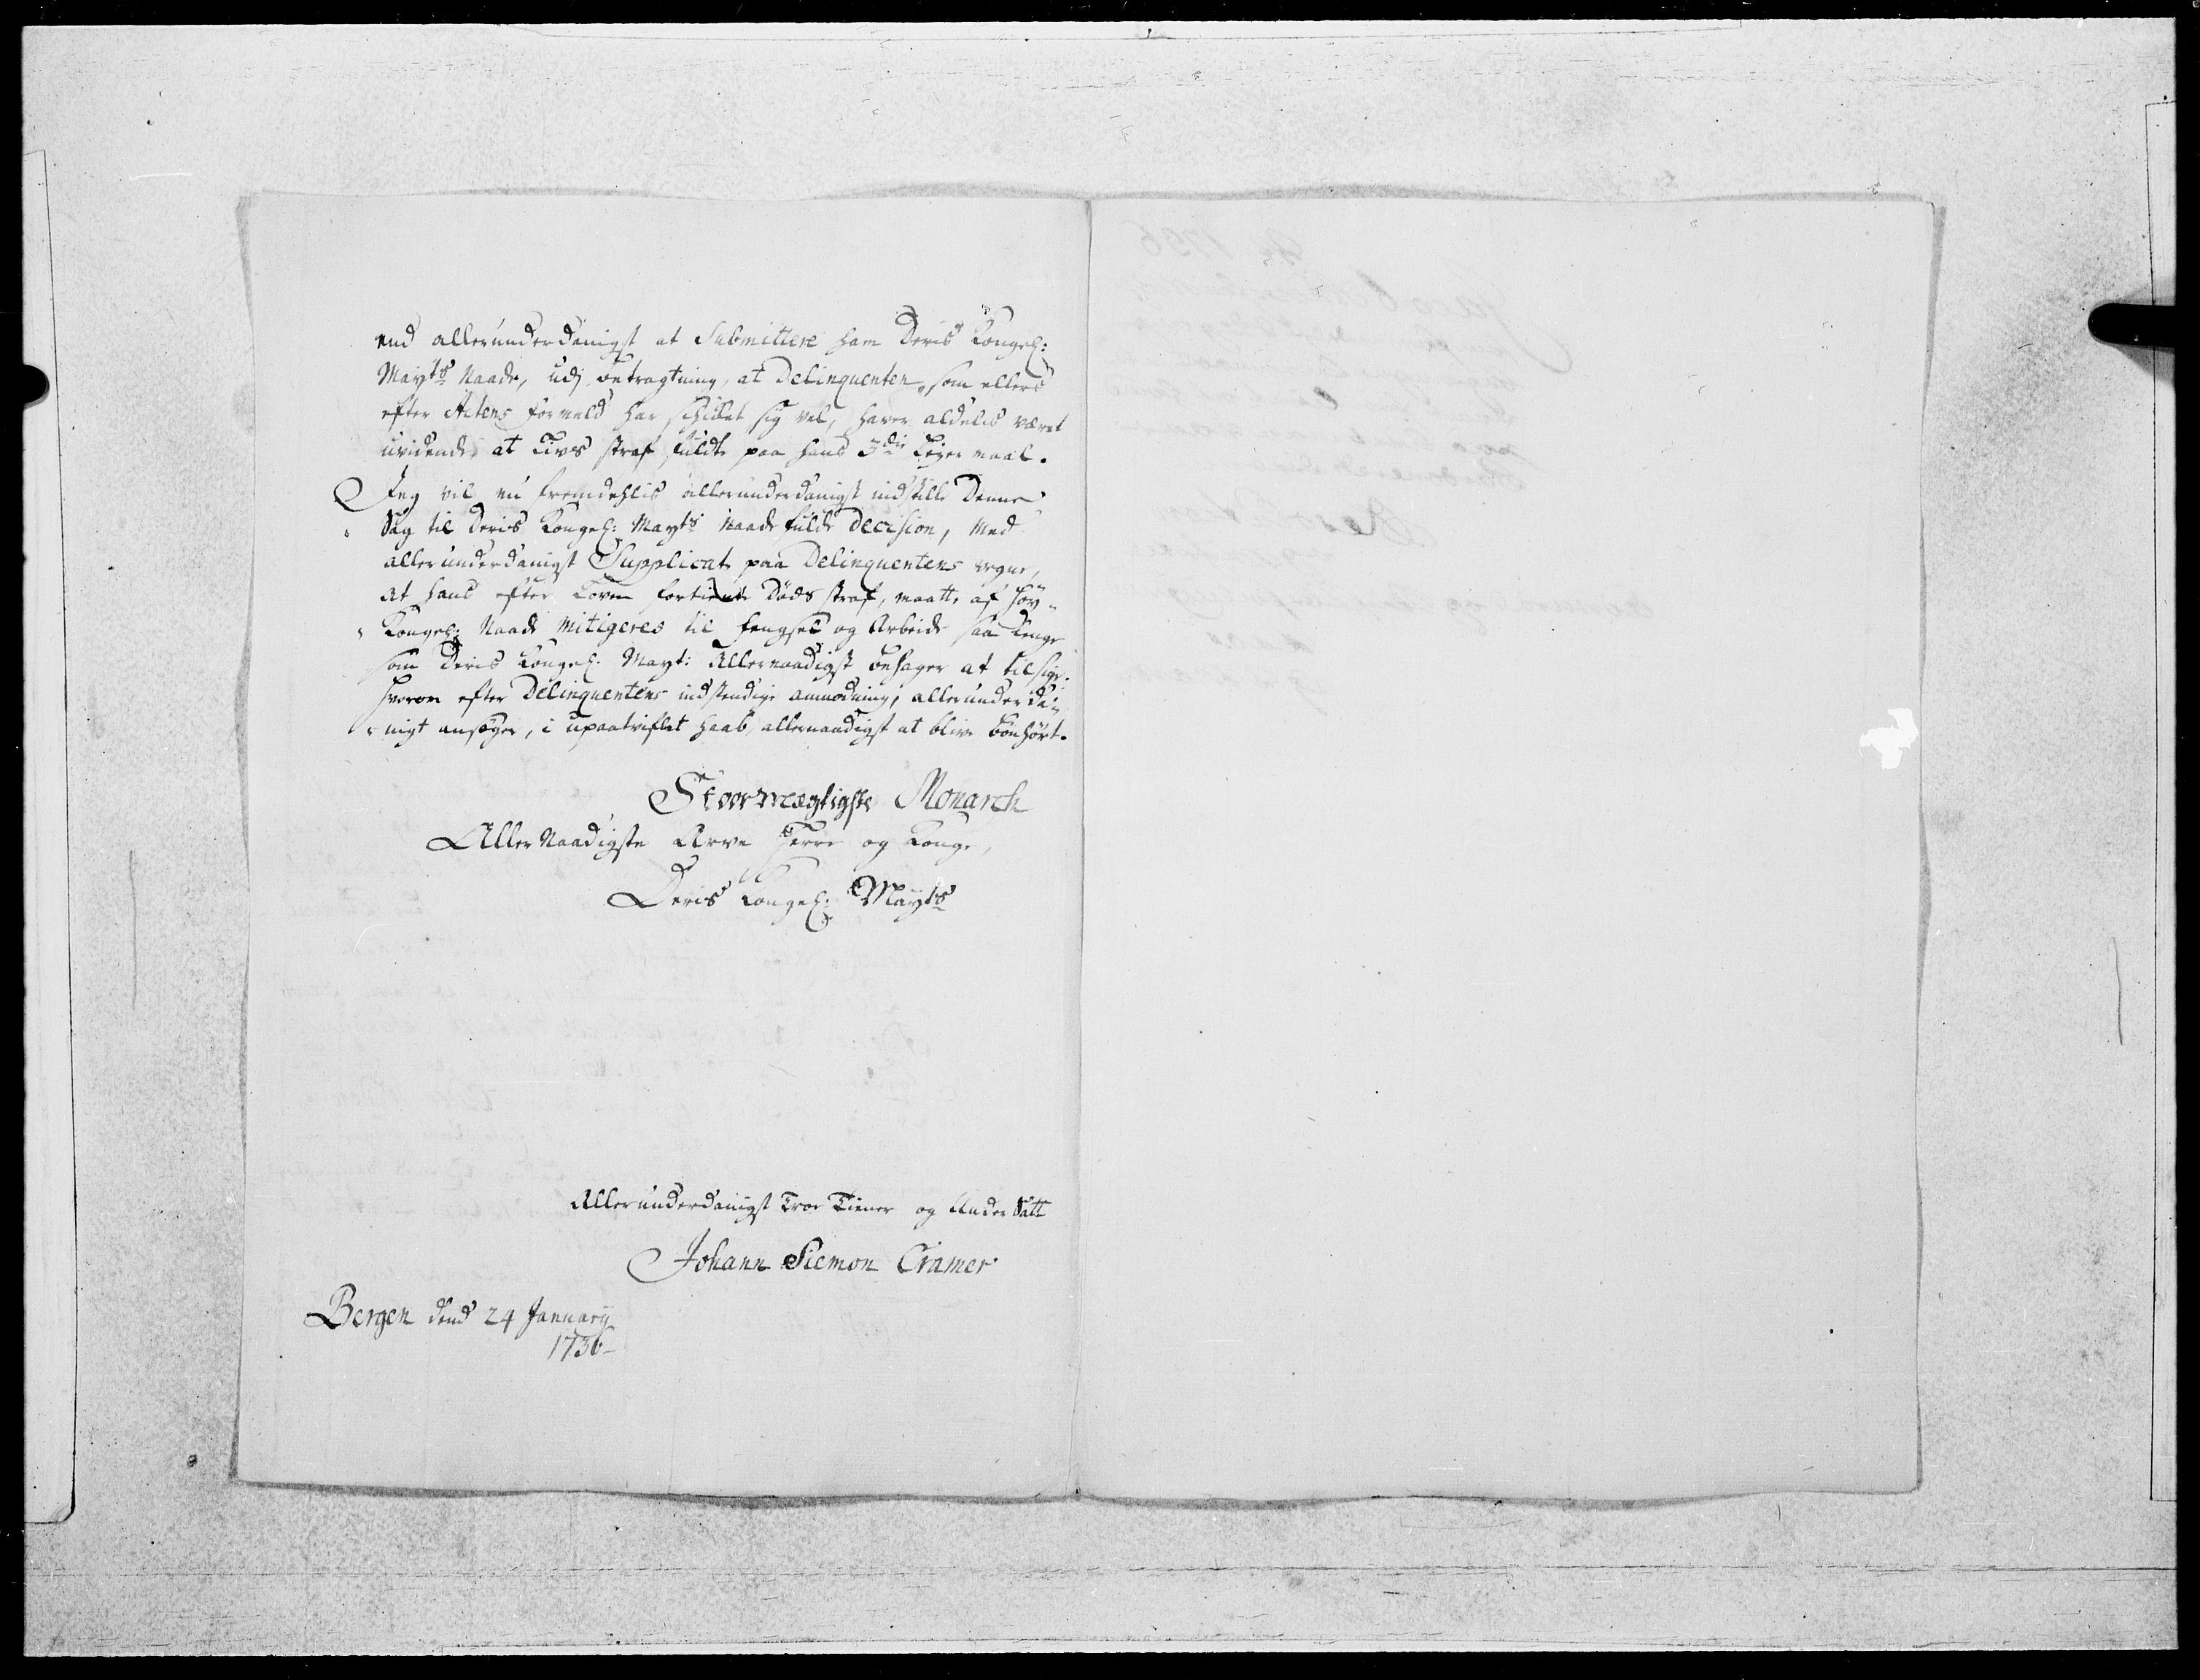 end allerunderdanigst at Submittere ham Deris Kongel:
Mayts Naade, udj betragtning, at Delinquenten, som ellers
efter Actens formeld har schicket sig vel, haver aldelis været
uvidende, at Livs straf fuldte paa hans 3die Leyermaal.
Jeg vil nu fremdehlis allerunderdanigst indstille Denne
Sag til Deris Kongel: Mayts Naadefulde Decision, med
allerunderdanigst Supplicat paa Delinquentens vegne,
at hans efter Loven fortiente Døds straf, maatte af høy-
Kongel: Naade mitigeres til fengsel og Arbeide saa lenge
som Deris Kongel: Mayt: Allernaadigst behager at tilsige.
hvorom efter Delinquentens indstendige anmodning, allerunderda-
nigst ansøger, i upaatviflet haab, allernaadigst at blive bønhørt.
Stoormægtigste Monarch
Aller Naadigste Arve Herre og Konge,
Deris Kongel: Mayts
Allerunderdanigst Troe Tiener og Under Satt
Johann Siemon Cramer
Bergen dend 24 January
1736